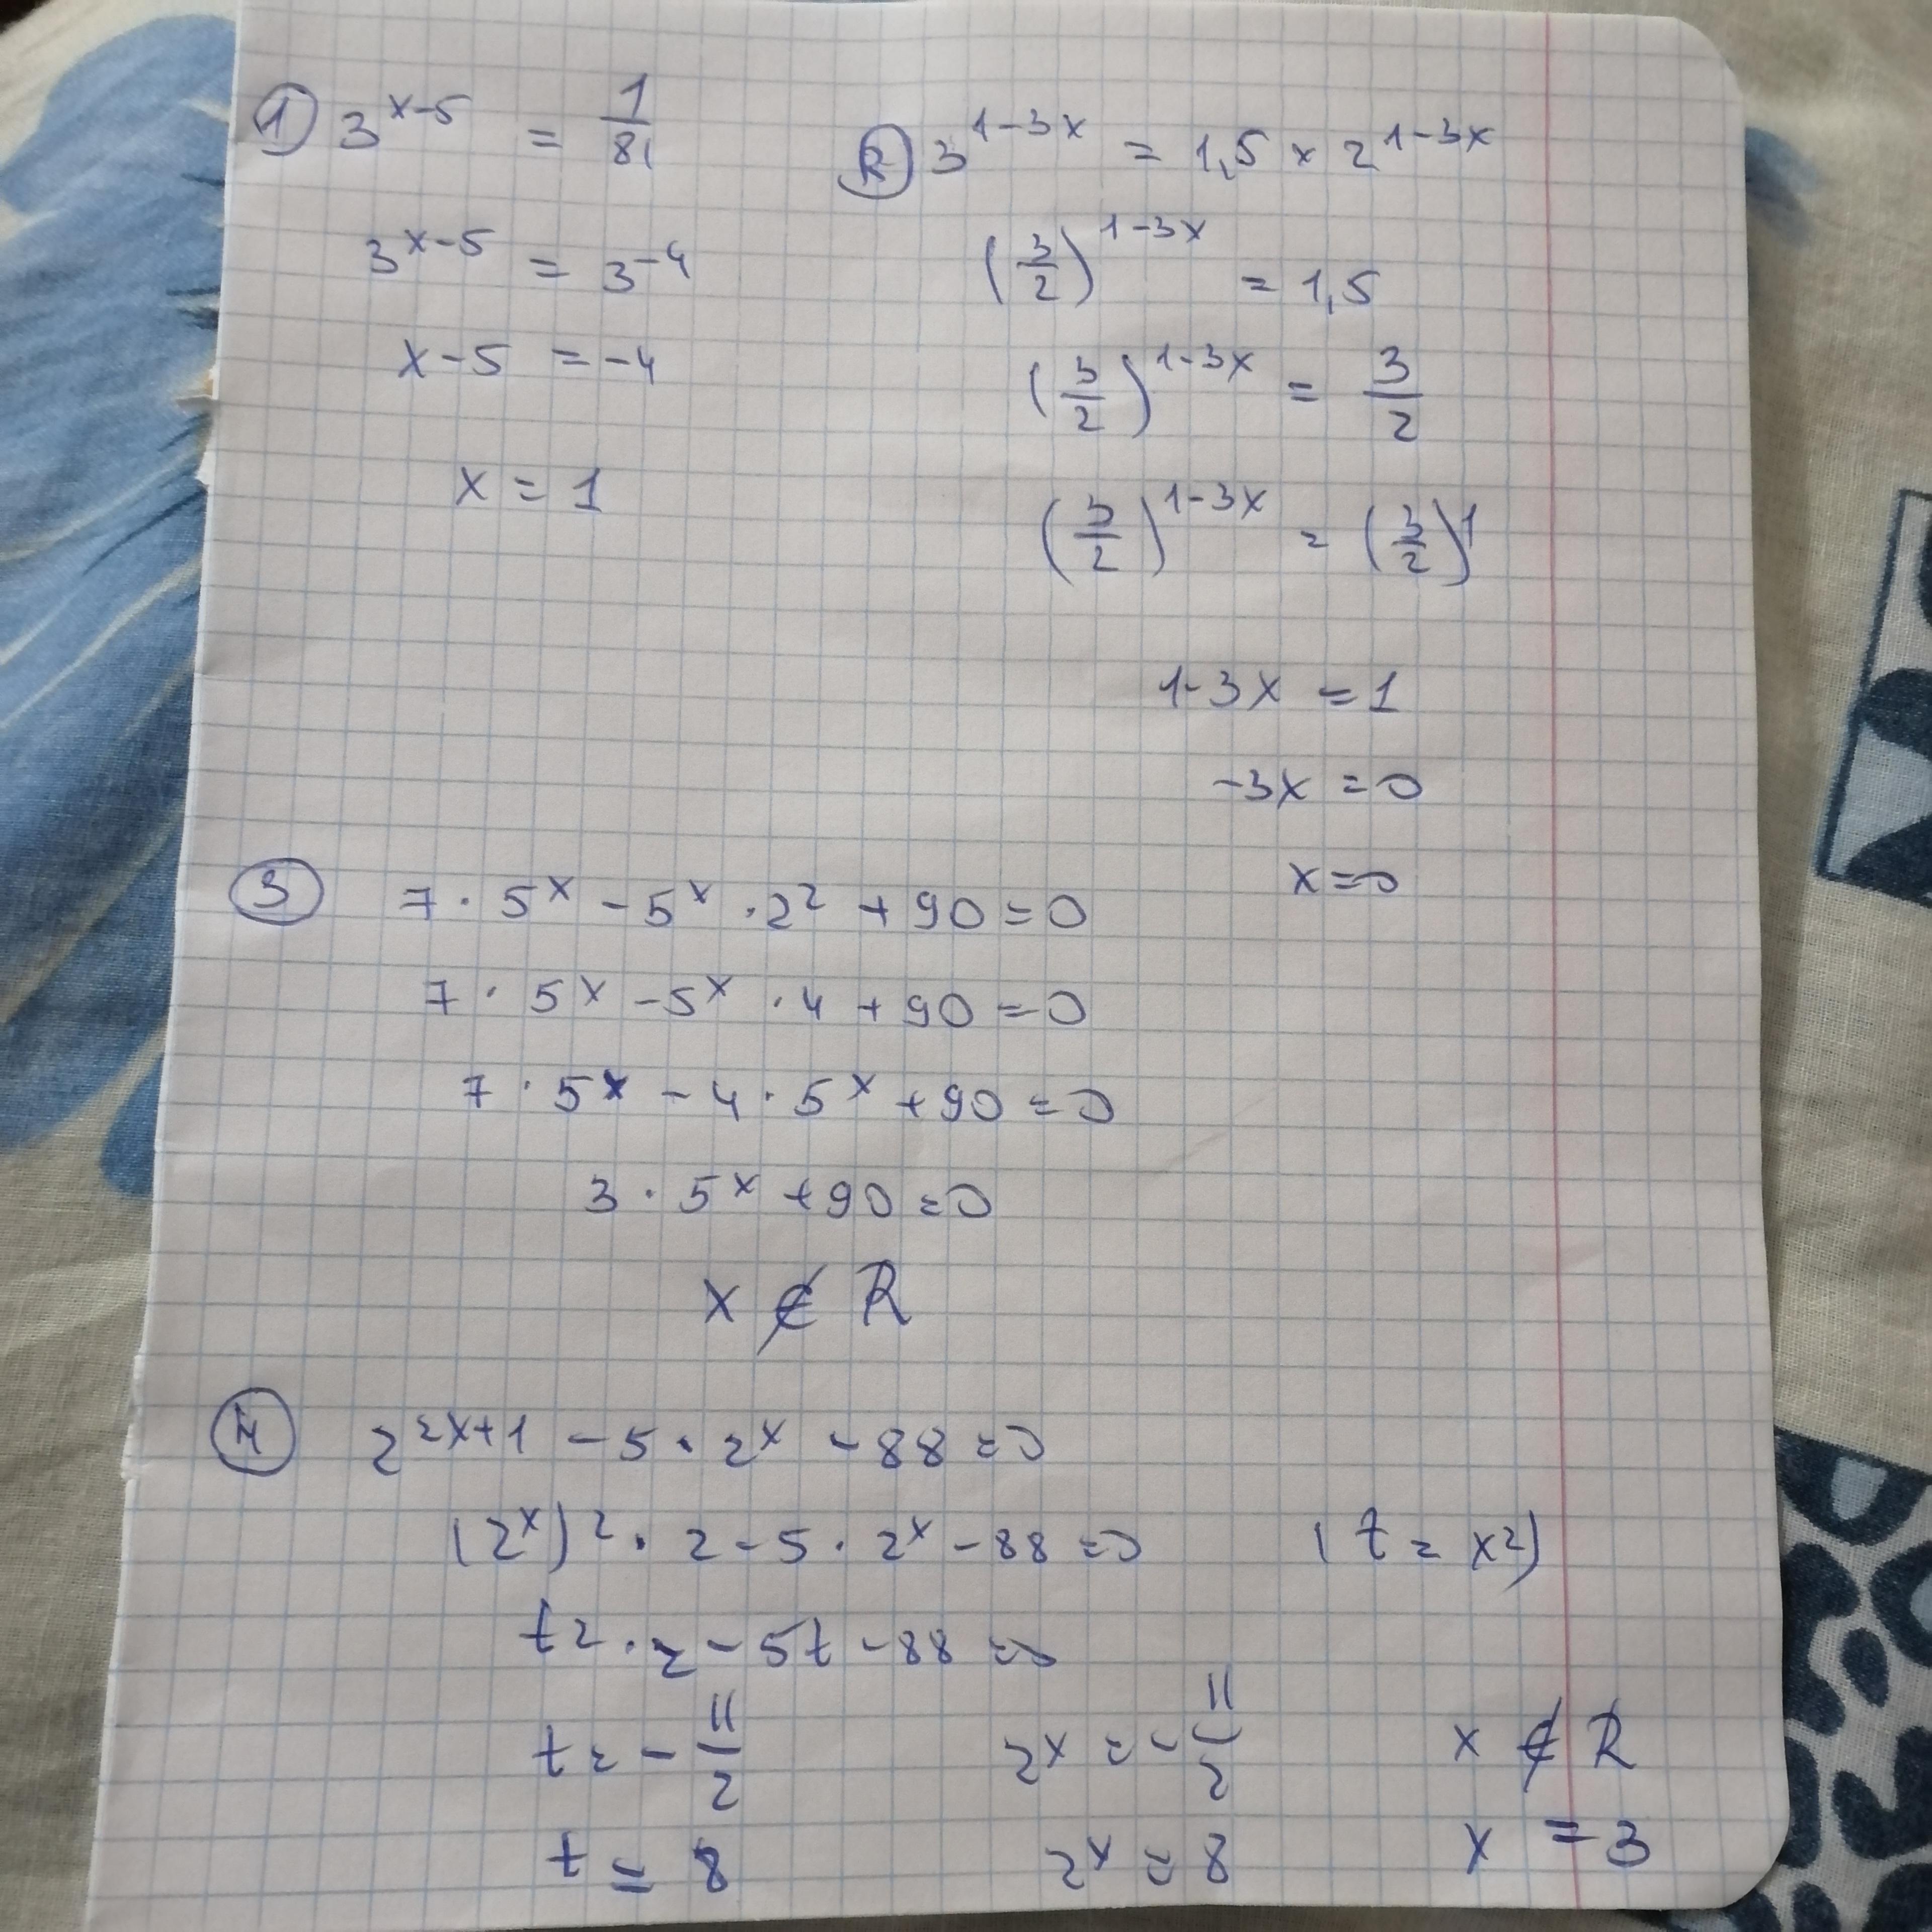 ① 3^{x-5} = \frac{1}{81}
3^{x-5} = 3^{-4}
x-5 = -4
x = 1
② 3^{1-3x} = 1,5 × 2^{1-3x}
(\frac{3}{2})^{1-3x} = 1,5
(\frac{3}{2})^{1-3x} = \frac{3}{2}
(\frac{3}{2})^{1-3x} = (\frac{3}{2})^1
1-3x = 1
-3x = 0
x = 0
③ 7 · 5^x - 5^x · 2^2 + 90 = 0
7 · 5^x - 5^x · 4 + 90 = 0
7 · 5^x - 4 · 5^x + 90 = 0
3 · 5^x + 90 = 0
x ∉ R
④ 2^{2x+1} - 5 · 2^x - 88 = 0
(2^x)^2 · 2 - 5 · 2^x - 88 = 0 (t = x^2)
t^2 · 2 - 5t - 88 = 0
t = -\frac{11}{2} 2^x = -\frac{11}{2} x ∉ R
t = 8 2^x = 8 x = 3